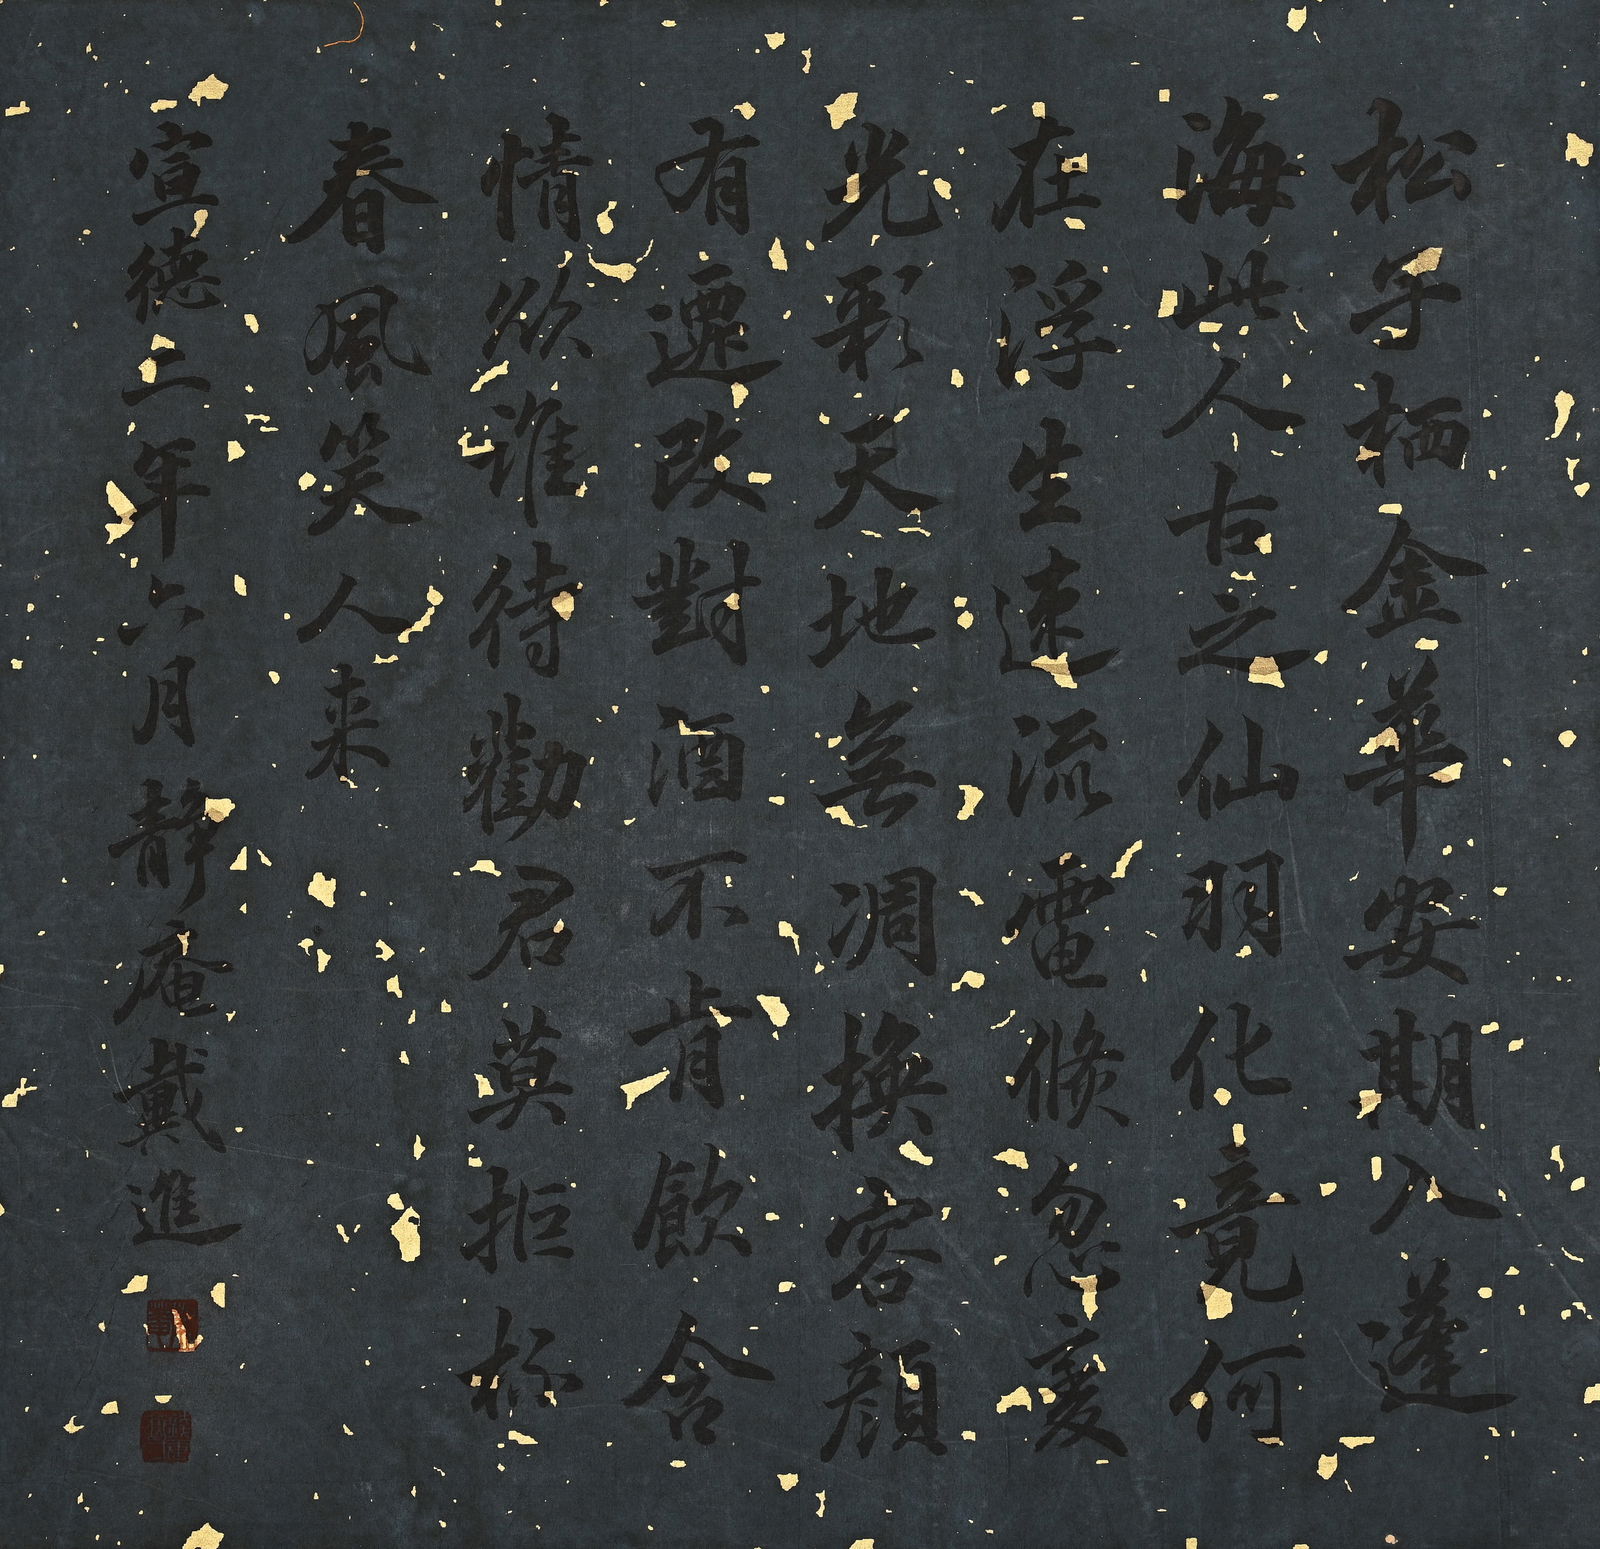 松子栖金華安期入蓬
海此人古之仙羽化竟何
在浮生速流電倏忽变
光彩天地無凋換容顔
有遷改對酒不肯飲含
情欲誰待勸君莫拒杯
春風笑人来
宣德二年六月靜庵戴進